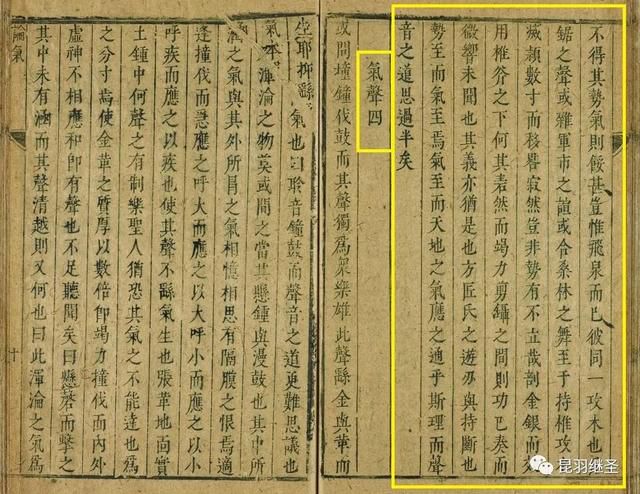 不得其勢氣則餒甚豈惟飛泉而已彼同一攻木也
鋸之聲或雜軍市之諠或合桑林之舞至于持椎攻
頴數寸而移晷寂然豈非勢有不立哉剖金銀而
用椎斧之下何其砉然而竭力剪鑷之間則功已奏而
微響未聞也其義亦猶是也方匠氏之遊刃與持斷也
勢至而氣至焉氣至而天地之氣應之通乎斯理而聲
音之道思過半矣
氣聲四
或問撞鐘伐鼓而其聲獨為衆樂雄此聲繇金與革而
坐耶抑繇氣也曰聆音鐘鼓而聲音之道更難思議也
氣本渾淪之物莫或間之當其懸鍾與漫鼓也其中所
涵之氣與其外所冒之氣相憶相思有隔膜之恨焉適
逢撞伐而急應之呼大而應之以大呼小而應之以小
呼疾而應之以疾也使其聲不繇氣生也張革地面實
土鍾中何聲之有制樂聖人猶恐其氣之不能達也為
之分寸焉使金革之質厚以數倍即竭力撞伐而內外
虛神不相應和即有聲也不足聽聞矣曰懸磬而擊之
其中未有涵而其聲清越則又何也曰此渾淪之氣為
論氣
十
昆羽继圣